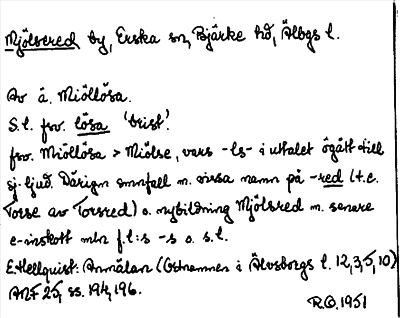 Mjölsered by, Erska sn, Bjärke hd, Älvbgs l.
Av ä. Miöllösa.
S.l. fsv. lösa 'brist'.
fsv. Miöllösa > Miölse, vars -ls- i uttalet ögått till
sj-ljud. Därigm smnfall m. vissa namn på -red (t.e.
Torse av Torsred) o. nybildning Mjölsred m. senare
e-inskott mln f.l:s -s o. s.l.
E. Hellquist: Anmälan (Ortnamnen i Älvsborgs l. 12,3,5,10)
ANF 25, ss. 194, 196.
R.O. 1951